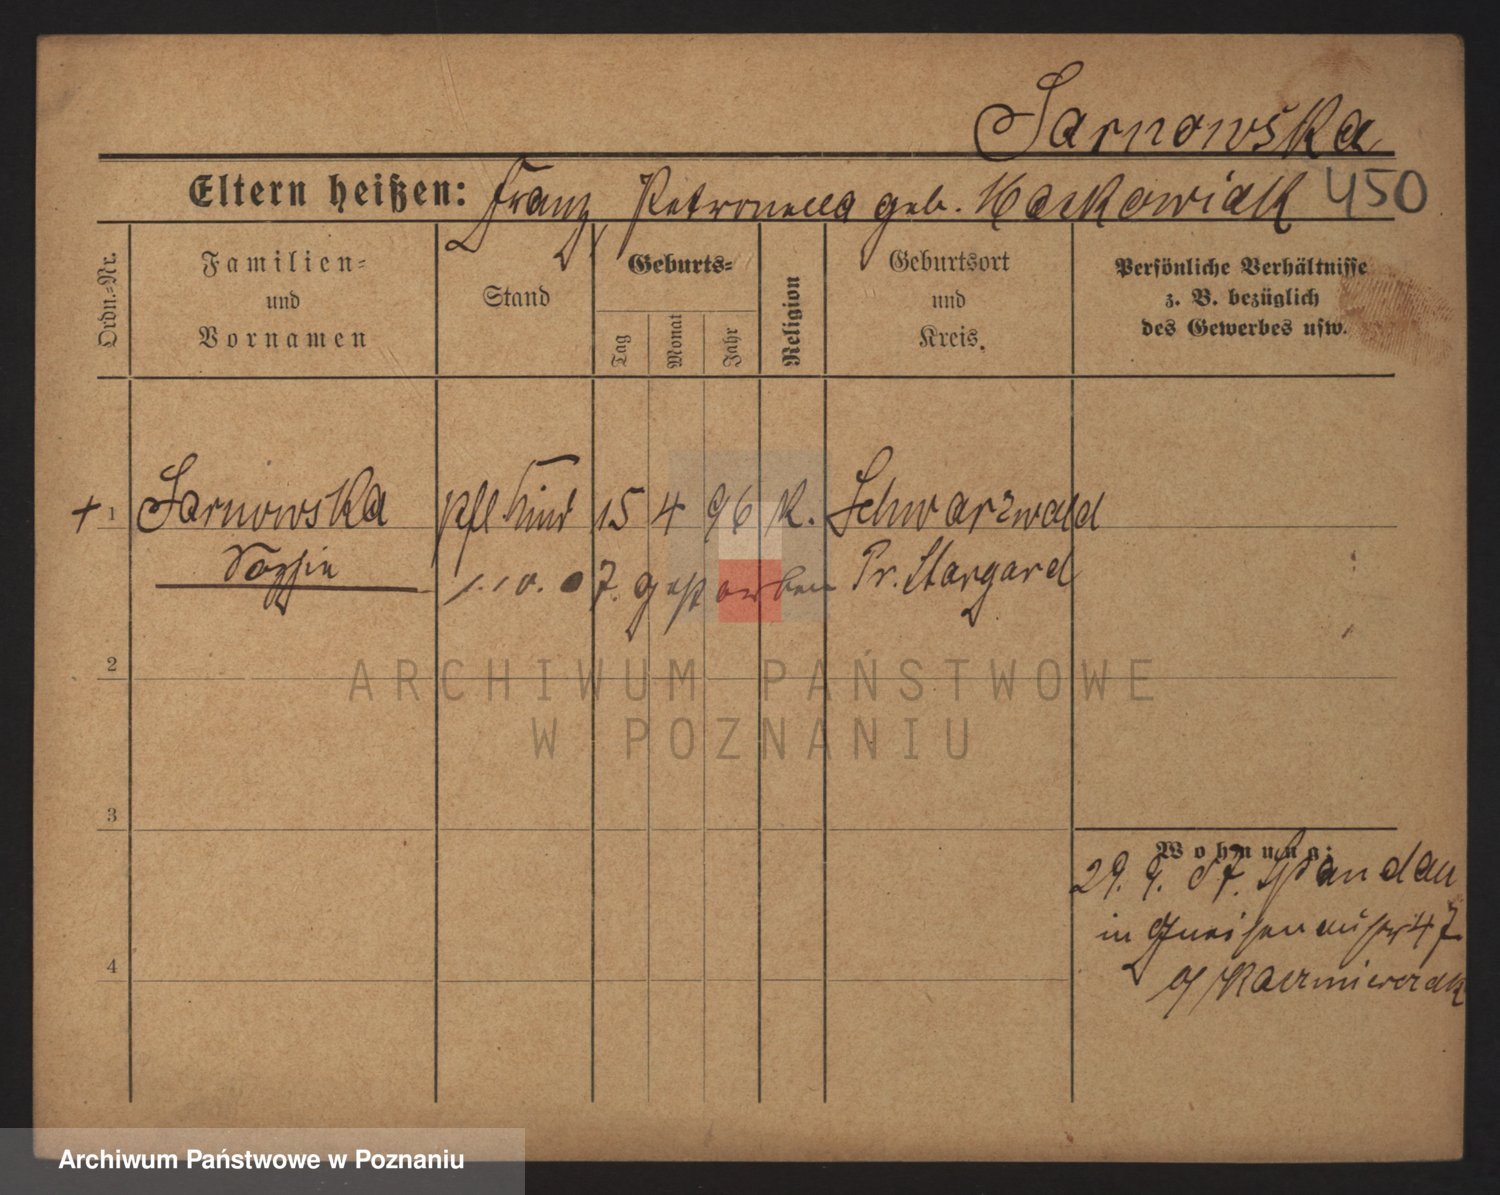 Sarnowska
Eltern heißen: Franz, Petronella geb. 450
Ordn.-Nr.
Familien-
und
Vornamen
Stand
Geburts-
Tag
Monat
Jahr
Religion
Geburtsort
und
Kreis.
Persönliche Verhältnisse
z. B. bezüglich
des Gewerbes usw.
+ 1 Sarnowska pfl. Kind 15 4 96 K. Schwarzwald
Sophie 1.10.07. gestorben Pr. Stargard
2
3
4
Wohnung:
29. 9. 07. Spandau
in Gneisenaustr 47
b/ Kazmierczak
ARCHIWUM PAŃSTWOWE
W POZNANIU
Archiwum Państwowe w Poznaniu